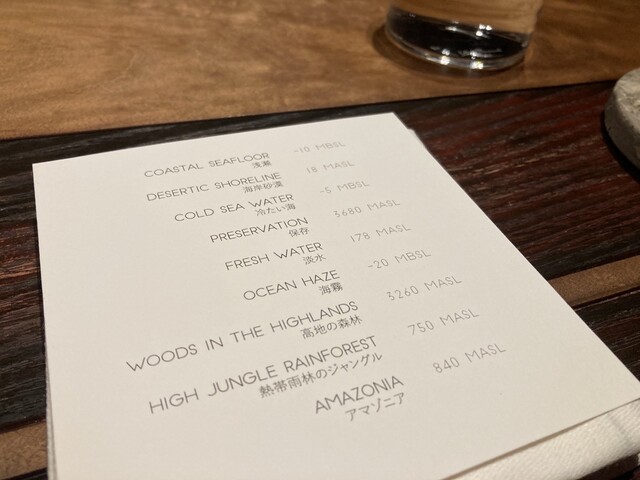 COASTAL SEAFLOOR -10 MBSL
浅瀬
DESERTIC SHORELINE 18 MASL
海岸砂漠
COLD SEA WATER -5 MBSL
冷たい海
PRESERVATION 3680 MASL
保存
FRESH WATER 178 MASL
淡水
OCEAN HAZE -20 MBSL
海霧
WOODS IN THE HIGHLANDS 3260 MASL
高地の森林
HIGH JUNGLE RAINFOREST 750 MASL
熱帯雨林のジャングル
AMAZONIA 840 MASL
アマゾニア